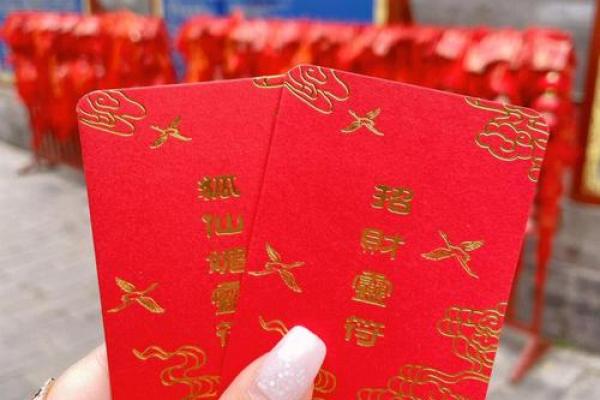 狐仙靈符
招財靈符